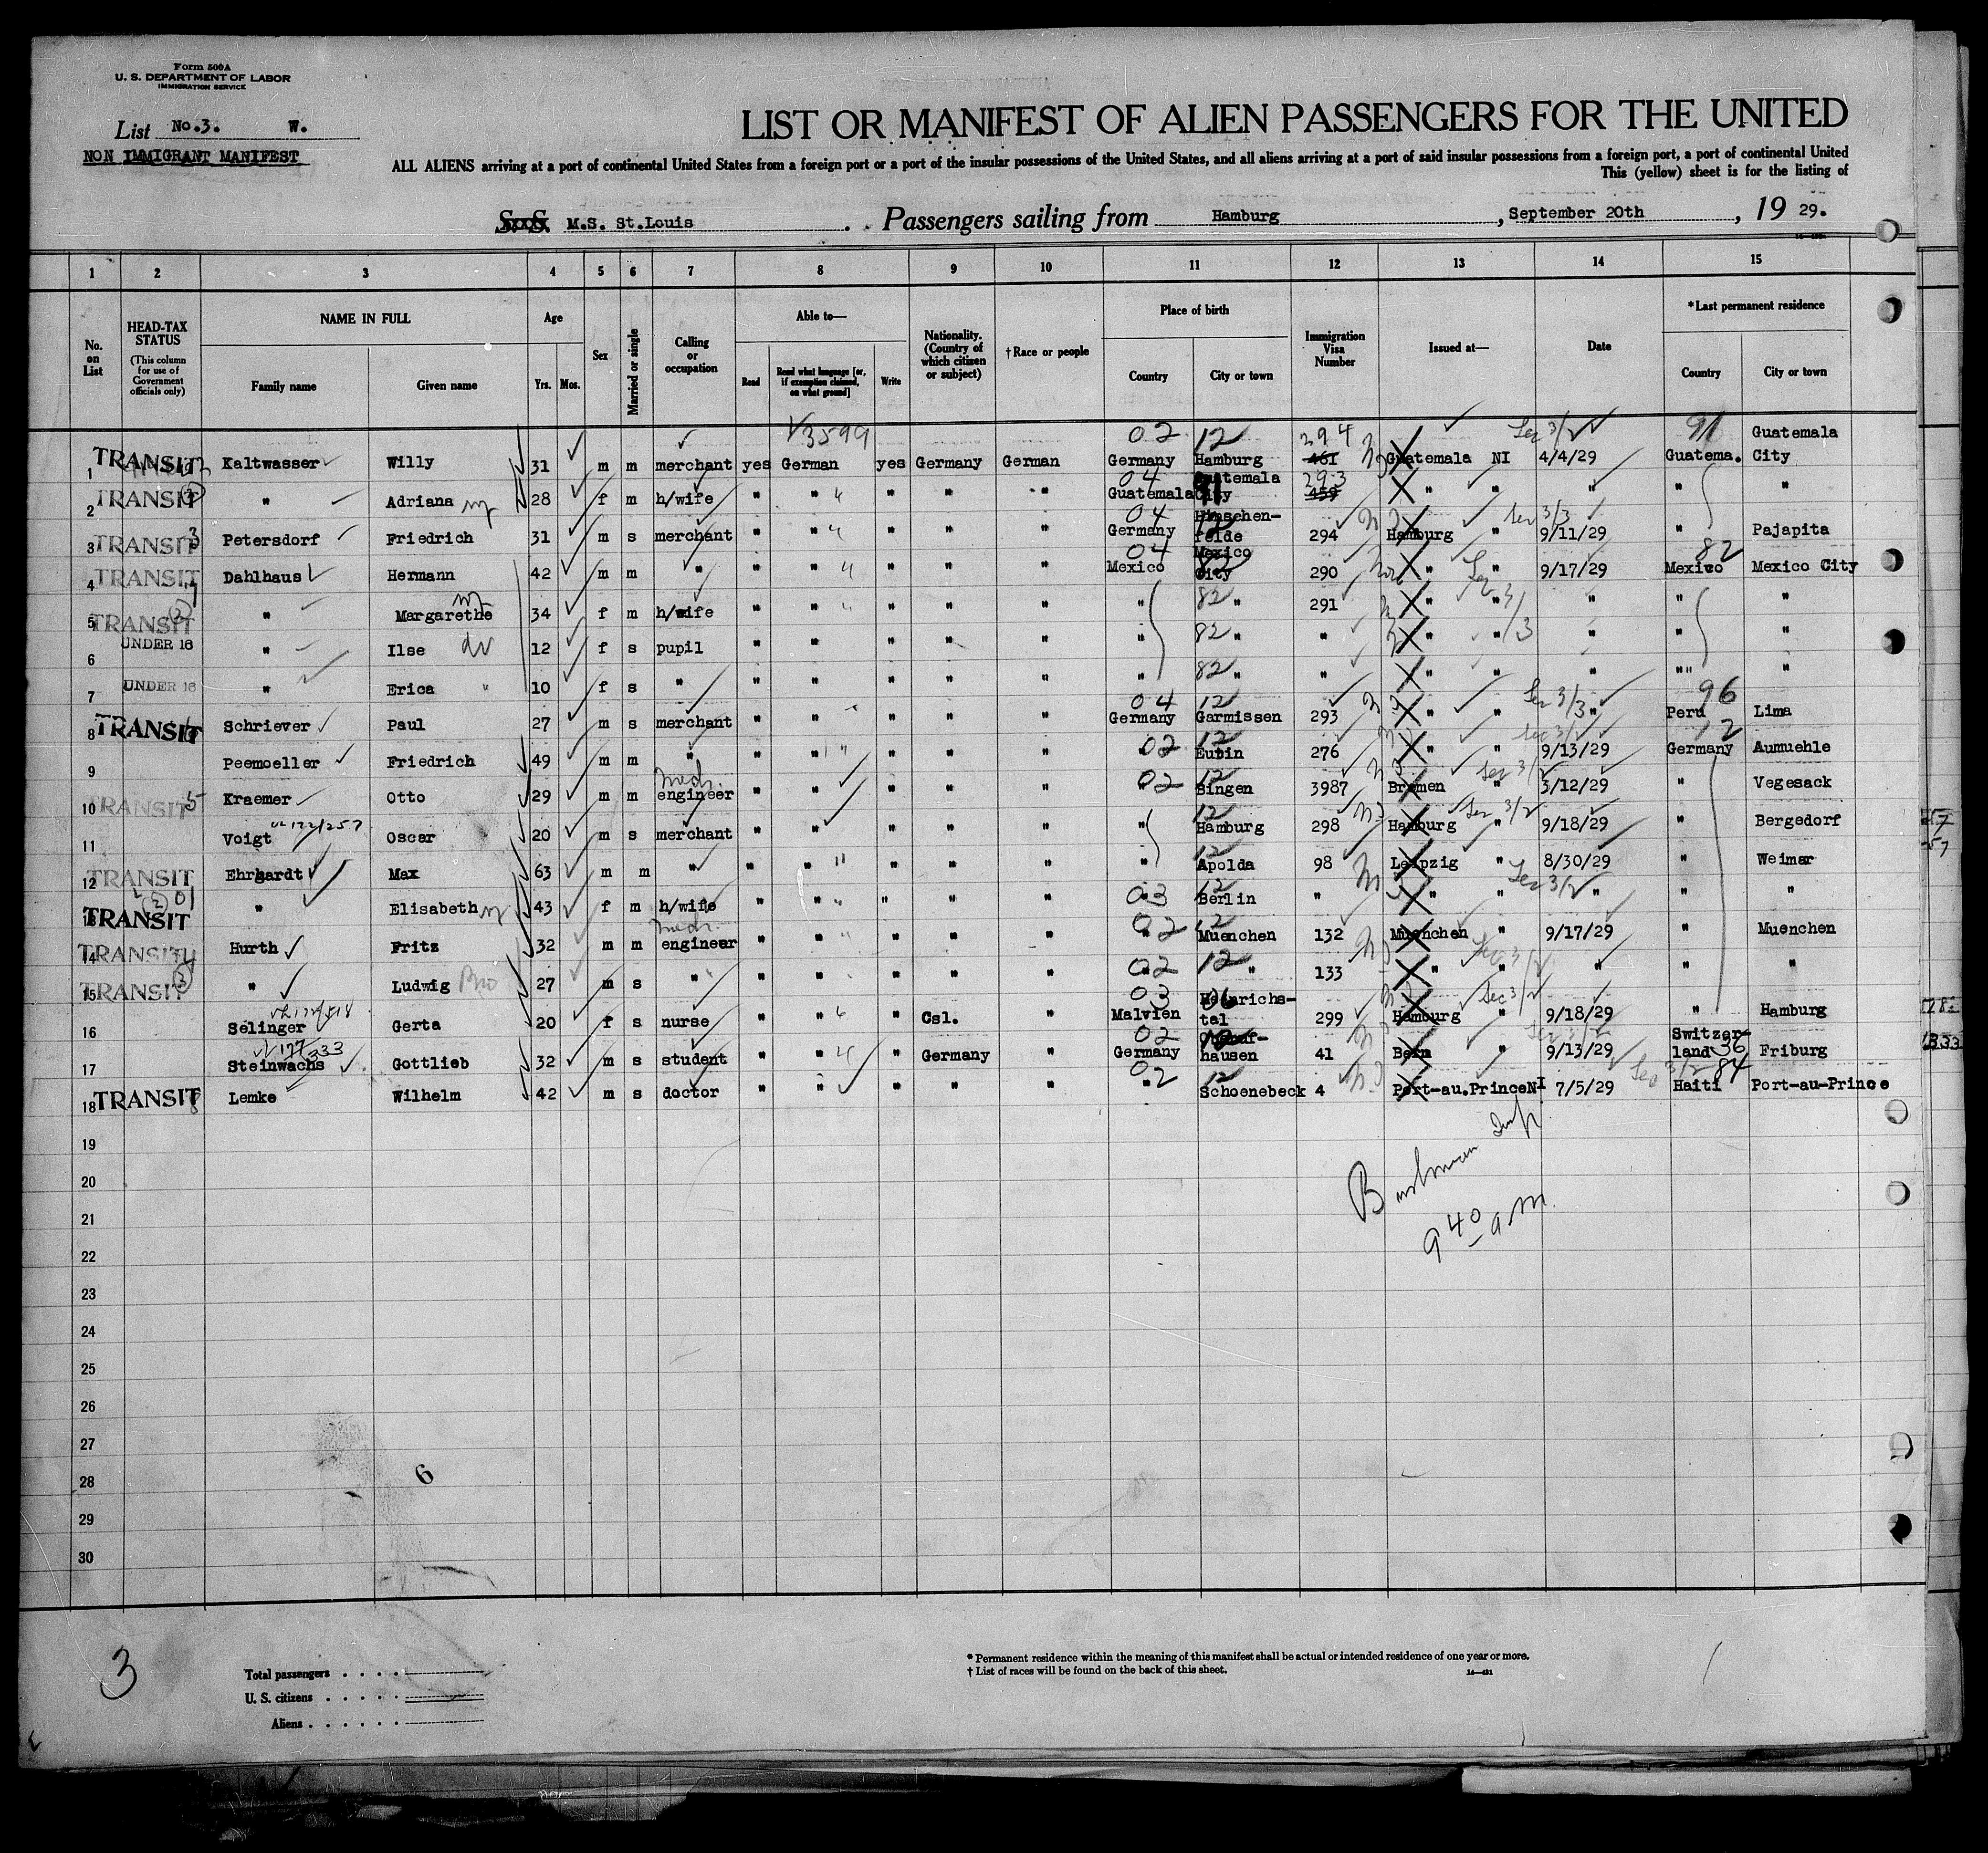 Form 500A
U. S. DEPARTMENT OF LABOR
IMMIGRATION SERVICE
List No.3. W.
NON IMMIGRANT MANIFEST
LIST OR MANIFEST OF ALIEN PASSENGERS FOR THE UNITED
ALL ALIENS arriving at a port of continental United States from a foreign port or a port of the insular possessions of the United States, and all aliens arriving at a port of said insular possessions from a foreign port, a port of continental United
This (yellow) sheet is for the listing of
S.S. M.S. St.Louis . Passengers sailing from Hamburg , September 20th , 19 29.
1 2 3 4 5 6 7 8 9 10 11 12 13 14 15
No. on List
HEAD-TAX STATUS (This column for use of Government officials only)
NAME IN FULL Family name Given name
Age Yrs. Mos.
Sex
Married or single
Calling or occupation
Able to— Read Read what language [or, if exemption claimed, on what ground] Write
Nationality. (Country of which citizen or subject)
† Race or people
Place of birth Country City or town
Immigration Visa Number
Issued at—
Date
*Last permanent residence Country City or town
√3599
1 TRANSIT Kaltwasser Willy 31 m m merchant yes German yes Germany German 02 Germany 12 Hamburg 294 461 Guatemala NI Sec 3/2 4/4/29 91 Guatema. Guatemala City
2 TRANSIT " Adriana 28 f m h/wife " " " " " 04 Guatemala Guatemala City 91 293 459 " " " " "
3 TRANSIT 3 Petersdorf Friedrich 31 m s merchant " " " " " 04 Germany Hinschen-felde 12 294 Hamburg " Sec 3/3 9/11/29 " Pajapita
4 TRANSIT Dahlhaus Hermann 42 m m " " " " " " 04 Mexico Mexico City 290 " " 9/17/29 82 Mexico Mexico City
5 TRANSIT (2) " Margarethe 34 f m h/wife " " " " " " 82 " 291 " " " " "
6 UNDER 16 " Ilse 12 f s pupil " " " " " " 82 " " " " " " "
7 UNDER 16 " Erica " 10 f s " " " " " " " 82 " " " " " "" "
8 TRANSIT Schriever Paul 27 m s merchant " " " " " 04 Germany 12 Garmissen 293 " " Sec 3/3 " 96 Peru Lima
9 Peemoeller Friedrich 49 m m " " " " " " 02 12 Eutin 276 " " Sec 3/2 9/13/29 12 Germany Aumuehle
10 TRANSIT 5 Kraemer Otto 29 m m mech. engineer " " " " " 02 12 Bingen 3987 Bremen " Sec 3/2 3/12/29 " Vegesack
11 Voigt Oscar 20 m s merchant " " " " " " 12 Hamburg 298 Hamburg " Sec 3/2 9/18/29 " Bergedorf
12 TRANSIT Ehrhardt Max 63 m m " " " " " " " 12 Apolda 98 Leipzig " 8/30/29 " Weimar
13 TRANSIT (2) " Elisabeth 43 f m h/wife " " " " " 03 " 12 Berlin " " " Sec 3/2 " " "
14 TRANSIT Hurth Fritz 32 m m mech. engineer " " " " " 02 " 12 Muenchen 132 Muenchen " 9/17/29 " Muenchen
15 TRANSIT " Ludwig Bro 27 m s " " " " " " 02 " 12 " 133 " " Sec 3/2 " " "
16 Selinger Gerta 20 f s nurse " " " Csl. " 03 Malvien Heinrichs-tal 299 Hamburg " Sec 3/2 9/18/29 " Hamburg
17 Steinwachs Gottlieb 32 m s student " " " Germany " 02 Germany hausen 41 Bern " 9/13/29 Switzer-land 36 Friburg
18 TRANSIT 8 Lemke Wilhelm 42 m s doctor " " " " " 02 " 12 Schoenebeck 4 Port-au.PrinceNI 7/5/29 84 Haiti Port-au-Prince
19
20
21
22
23
24
25
26
27
28
29
30
Bushman Insp
9 40 a.m.
6
3
Total passengers
U. S. citizens
Aliens
* Permanent residence within the meaning of this manifest shall be actual or intended residence of one year or more.
† List of races will be found on the back of this sheet.